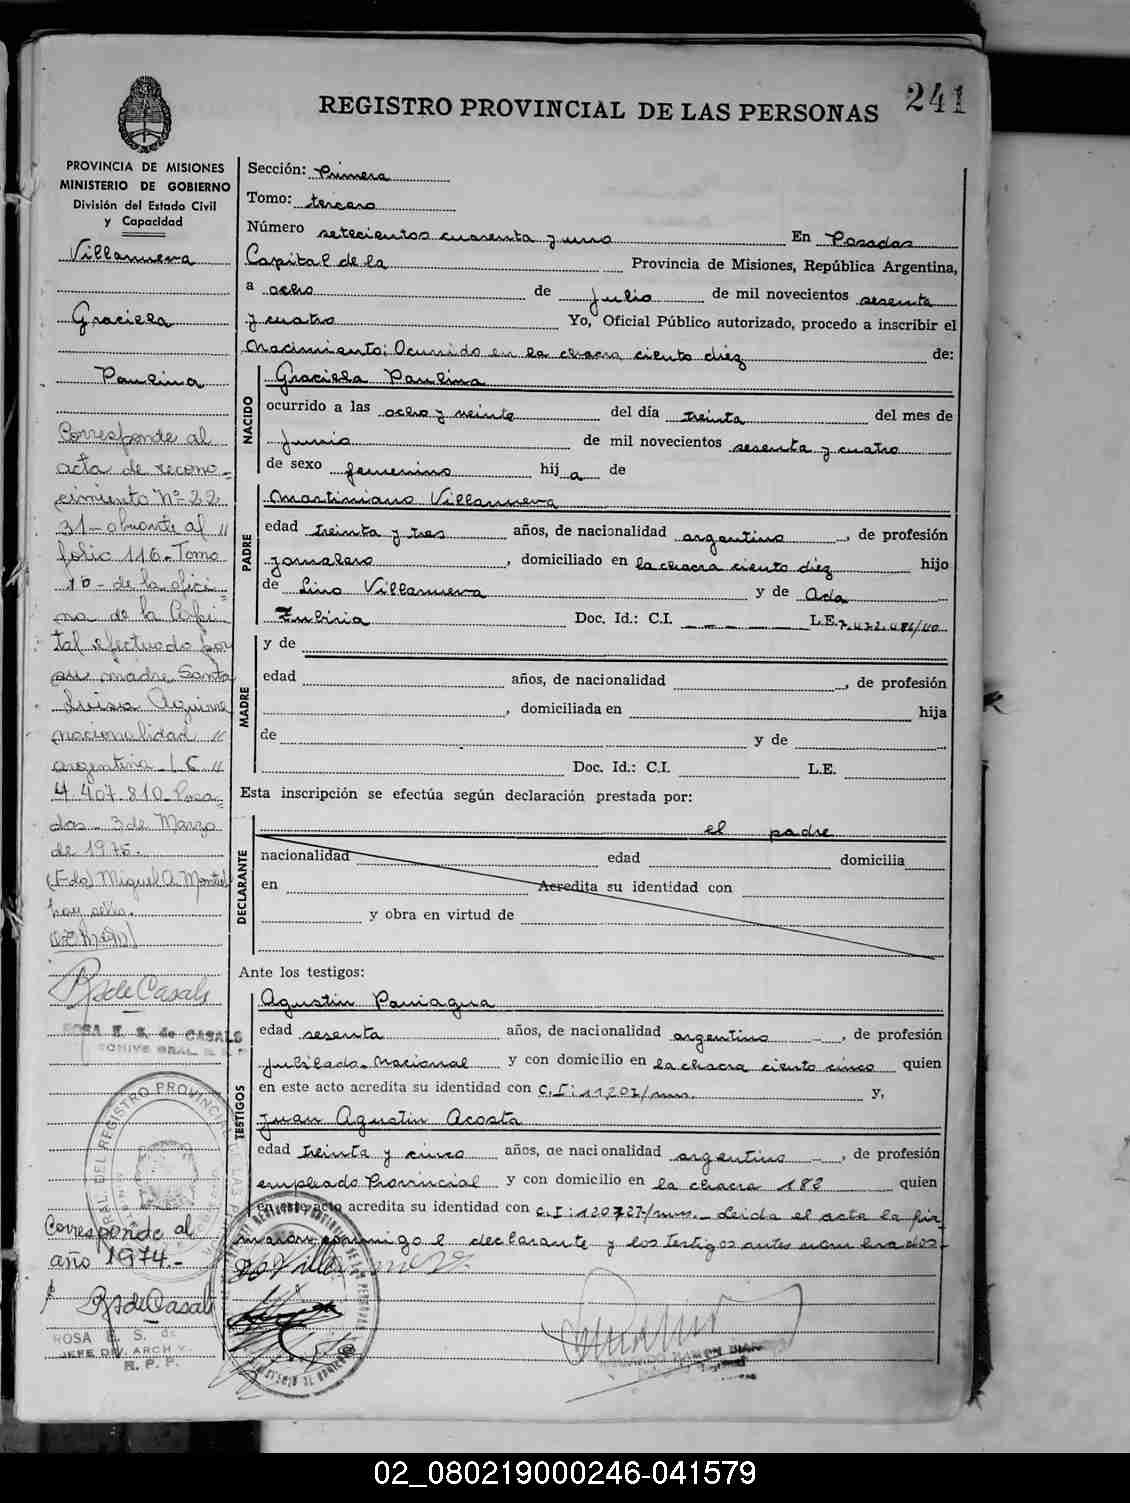 241
REGISTRO PROVINCIAL DE LAS PERSONAS
PROVINCIA DE MISIONES
MINISTERIO DE GOBIERNO
División del Estado Civil
y Capacidad
Villanueva
Graciela
Paulina
Corresponde al
acta de recono-
cimiento Nº 22
31 - obrante al
folio 116 - Tomo
1º - de la ofici-
na de la Capi-
tal efectuado por
su madre Santa
Luisa Aquino
nacionalidad
argentina - L C
4.407.810 - Posa-
das - 3 de Marzo
de 1975.
(Fdo) Miguel A. Montiel
hay sello.
R. de Casals
ROSA E. S. de CASALS
Corresponde al
año 1974.-
R. de Casals
ROSA E. S. de
JEFE DIV. ARCH Y.
R. P. P.
Sección: Primera
Tomo: tercero
Número setecientos cuarenta y uno En Posadas
Capital de la Provincia de Misiones, República Argentina,
a ocho de Julio de mil novecientos sesenta
y cuatro Yo, Oficial Público autorizado, procedo a inscribir el
Nacimiento: Ocurrido en la chacra ciento diez de:
NACIDO
Graciela Paulina
ocurrido a las ocho y veinte del día treinta del mes de
Junio de mil novecientos sesenta y cuatro
de sexo femenino hij a de
PADRE
Martiniano Villanueva
edad treinta y tres años, de nacionalidad argentino, de profesión
jornalero, domiciliado en la chacra ciento diez hijo
de Lino Villanueva y de Ada
Zubiria Doc. Id.: C.I. _ _ _ _ _ L.E.
MADRE
y de
edad años, de nacionalidad , de profesión
, domiciliada en hija
de y de
Doc. Id.: C.I. L.E.
Esta inscripción se efectúa según declaración prestada por:
DECLARANTE
el padre
nacionalidad edad domicilia
en Acredita su identidad con
y obra en virtud de
Ante los testigos:
TESTIGOS
Agustin Paniagua
edad sesenta años, de nacionalidad argentino -, de profesión
Jubilado Nacional y con domicilio en la chacra ciento cinco quien
en este acto acredita su identidad con C.I: 11,202/mns. y,
Juan Agustin Acosta
edad treinta y cinco años, de nacionalidad argentino -, de profesión
empleado Provincial y con domicilio en la chacra 182 quien
en este acto acredita su identidad con C.I: 120727/mns. - Leida el acta la fir-
maron conmigo el declarante y los testigos antes nombrados.
02_080219000246-041579